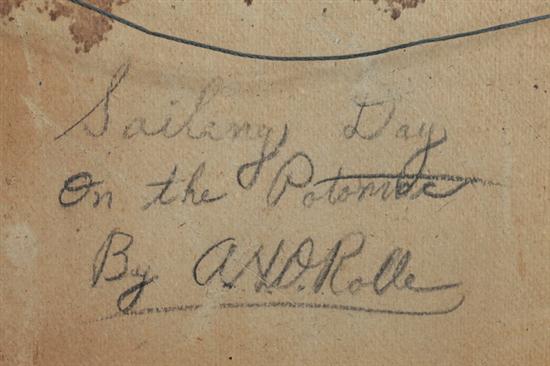 Sailing Day
On the Potomac
By A.H.O. Rolle